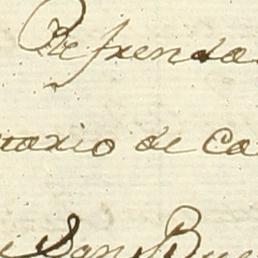 Refrenda
tario de Ca
San Bue